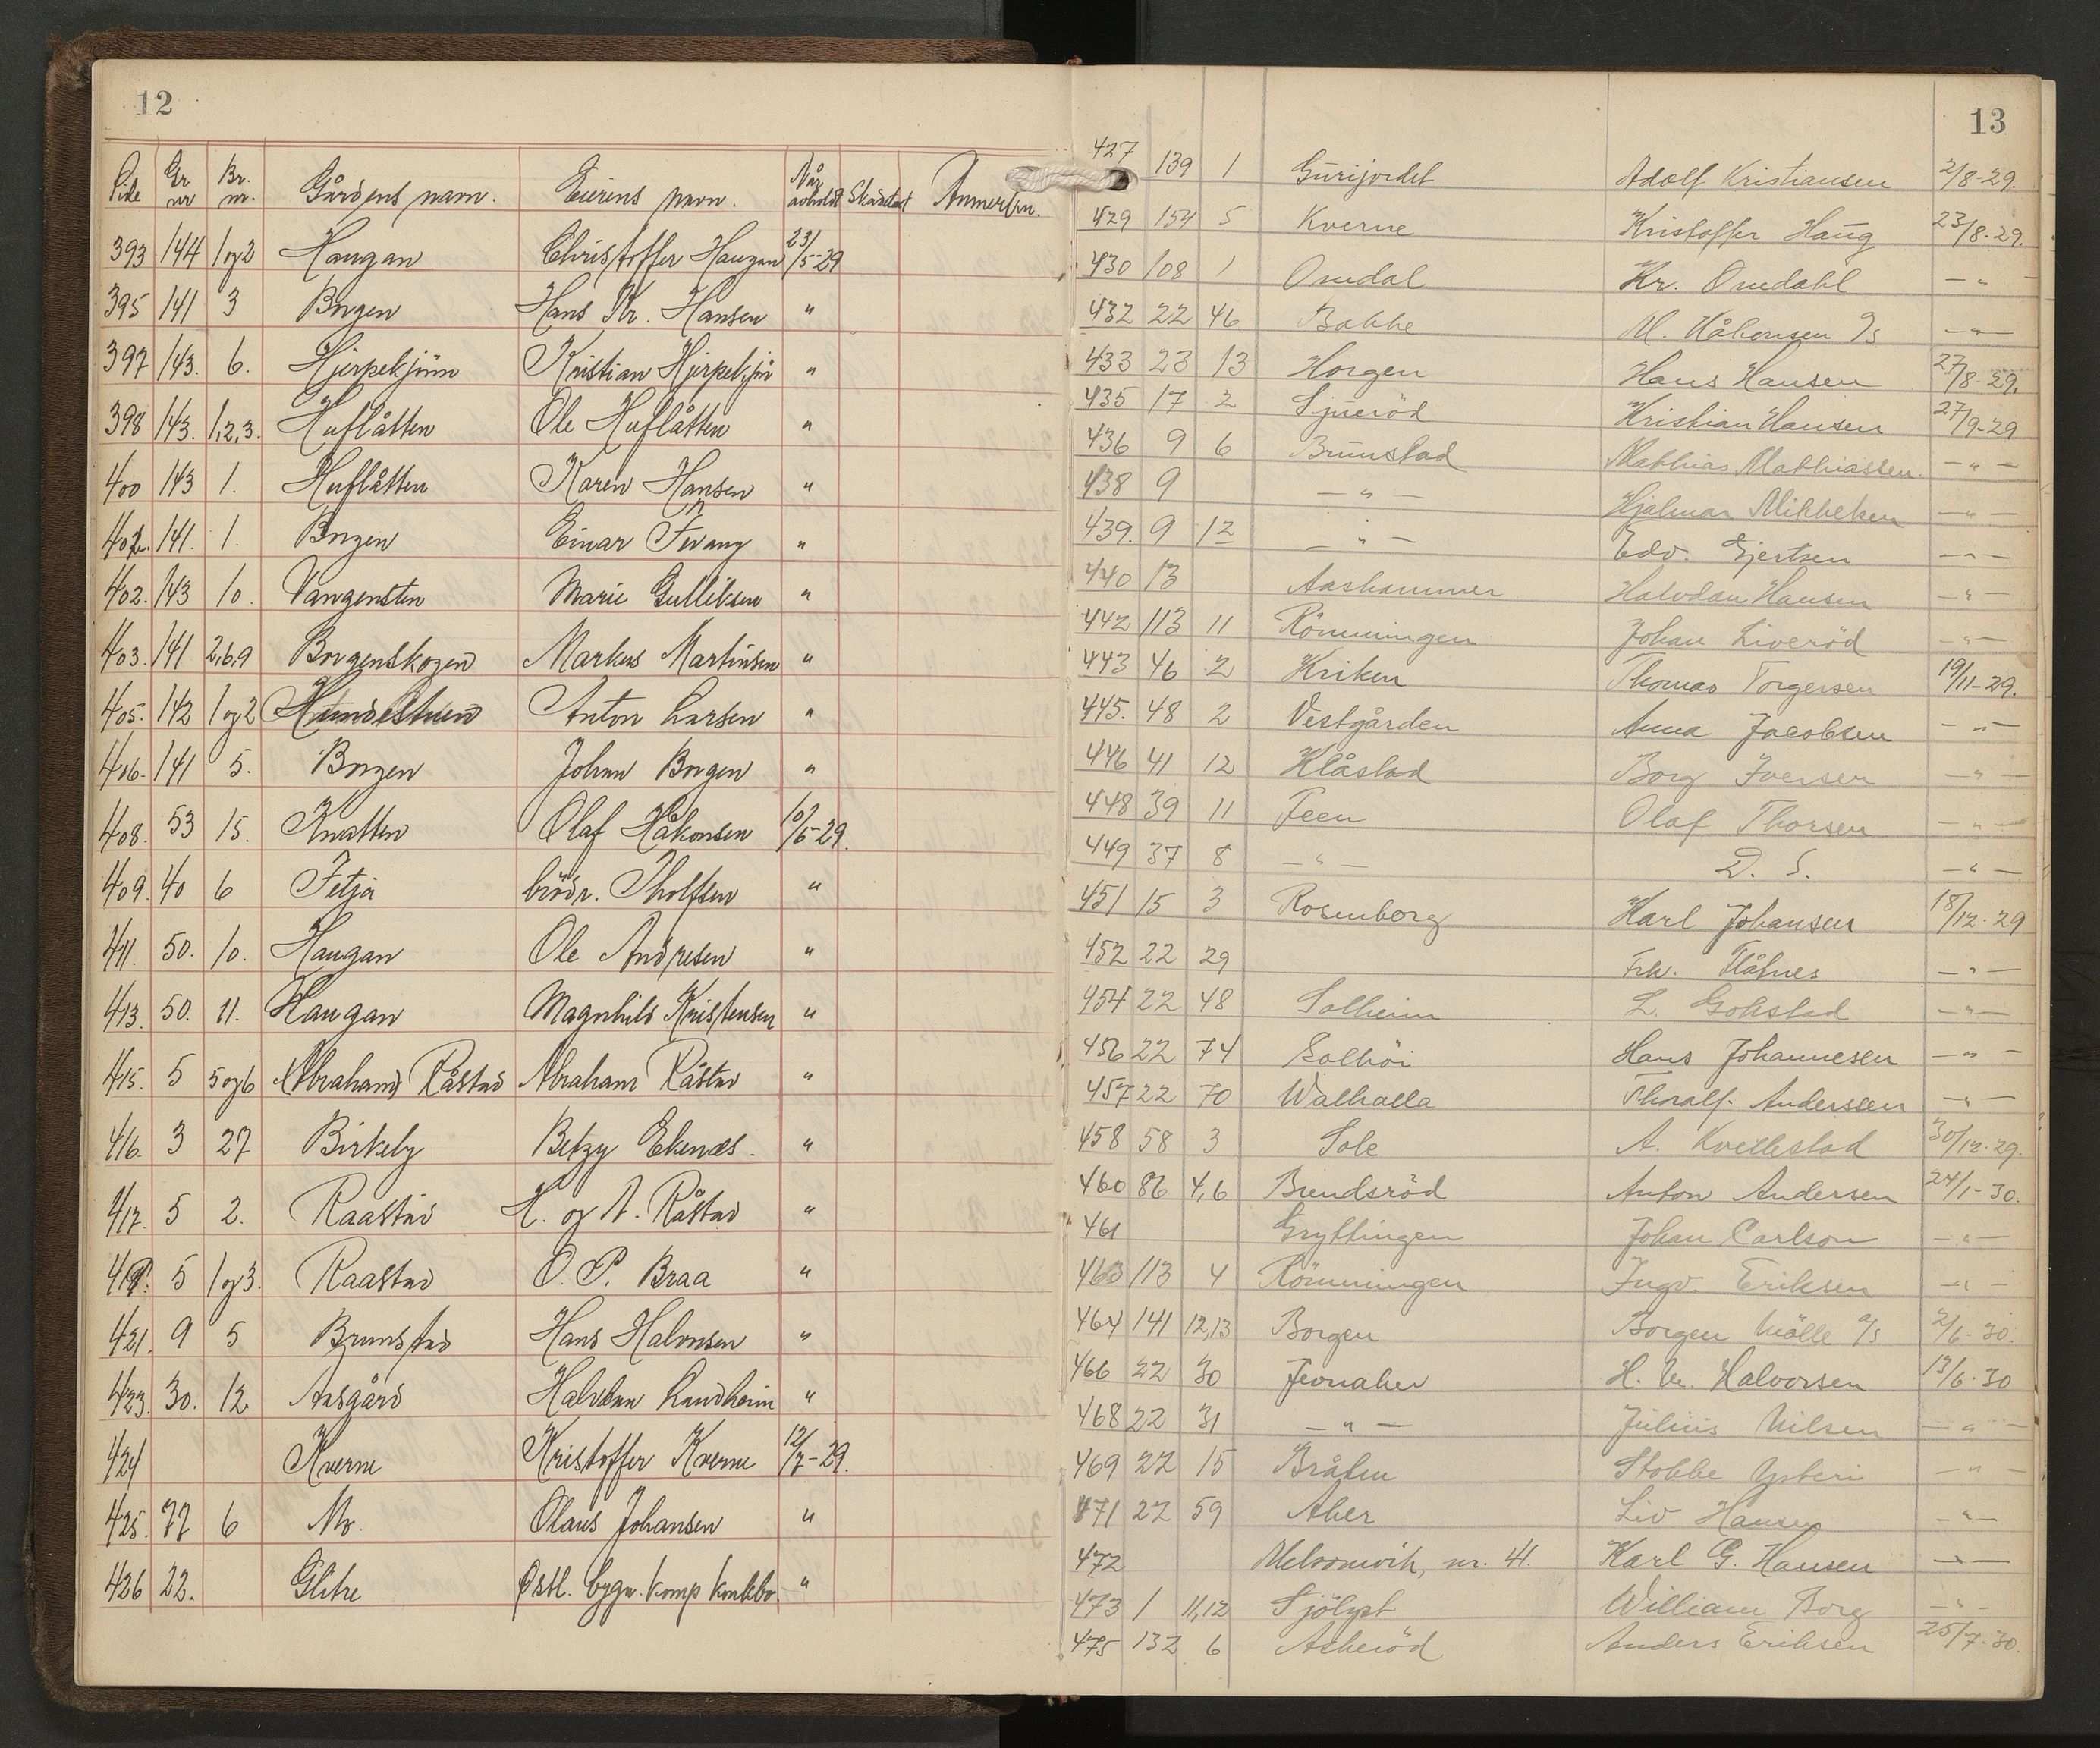 12
Side Gr nr Br. nr. Gårdens navn. Eierens navn. Når avholdt Skadetakst Anmerkn.
393 144 1 og 2 Haugan Christoffer Haugan 23/5-29
395 141 3 Borgen Hans Kr. Hansen "
397 143. 6. Hjerpekjønn Kristian Hjerpekjøn "
398 143. 1,2,3. Huflåtten Ole Huflåtten "
400 143 1. Huflåtten Karen Hansen "
402. 141. 1. Borgen Einar Fevang "
402. 143 10. Vangensten Marie Gulliksen "
403. 141 2,6,9 Borgenskogen Markus Martinsen "
405. 142 1 og 2 Anton Larsen "
406. 141 5. Borgen Johan Borgen "
408. 53 15. Knatten Olaf Håkonsen 10/6-29.
409. 40 6 Fetja brödr. Tholfsen "
411. 50. 10. Haugan Ole Andresen "
413. 50. 11. Haugan Magnhild Kristensen "
415. 5 5 og 6 Abrahams Råstad Abraham Råstad "
416. 3 27 Birkeby Betzy Ekenæs. "
417. 5 2. Raastad H. og A. Råstad "
419. 5 1 og 3. Raastad O. P. Braa "
421. 9 5 Brunstad Hans Halvorsen "
423. 30. 12. Aasgård Halvdan Lundheim "
424 Kverne Kristoffer Kverne 12/7-29.
425. 77 6 Mo. Olaus Johansen "
426 22. Glitre Østl. bygn. komp konkbo. "
13
427 139 1 Gurijordet Adolf Kristiansen 2/8-29.
429 154 5 Kverne Kristoffer Haug 23/8-29.
430 108 1 Omdal Kr. Omdahl - " -
432 22 46 Bakke M. Håkonsen - " -
433 23 13 Horgen Hans Hansen 27/8-29.
435 17 2 Sjueröd Kristian Hansen 27/9-29
436 9 6 Brunstad Mathias Mathiassen. - " -
438 9 - " - Hjalmar Mikkelsen - " -
439. 9 12 - " - Edv. Gjertsen - " -
440 13 Aashammer Halvdan Hansen - " -
442 113 11 Römmingen Johan Liveröd - " -
443 46 2 Kriken Thomas Torgersen 19/11-29.
445. 48 2 Vestgården Anna Jacobsen - " -
446 41 12 Klåstad Borg Iversen - " -
448 39 11 Feen Olaf Thorsen - " -
449 37 8 - " - D. S. - " -
451 15 3 Rosenborg Karl Johansen 18/12-29
452 22 29 Frk. Flåtnes - " -
454 22 48 Solheim L. Gokstad - " -
456 22 74 Solhöi Hans Johannesen - " -
457 22 70 Walhalla Thoralf Anderssen - " -
458 58 3 Sole A. Kvellestad 30/12-29.
460 86 4,6 Bundsröd Anton Andersen 24/1-30.
461 Gryttingen Johan Carlson - " -
463 113 4 Römmingen Ingv. Eriksen - " -
464 141 12,13 Borgen Borgen Mölle A/S 2/6-30.
466 22 30 Jevnaker H. Kr. Halvorsen 13/6-30
468 22 31 - " - Julius Nilsen - " -
469 22 15 Bråten Stokke Ysteri - " -
471 22 59 Aker Liv Hansen - " -
472 Melsomvik, nr. 41. Karl G. Hansen - " -
473 1 11,12 Sjölyst William Borg - " -
475 132 6 Askeröd Anders Eriksen 25/7-30.